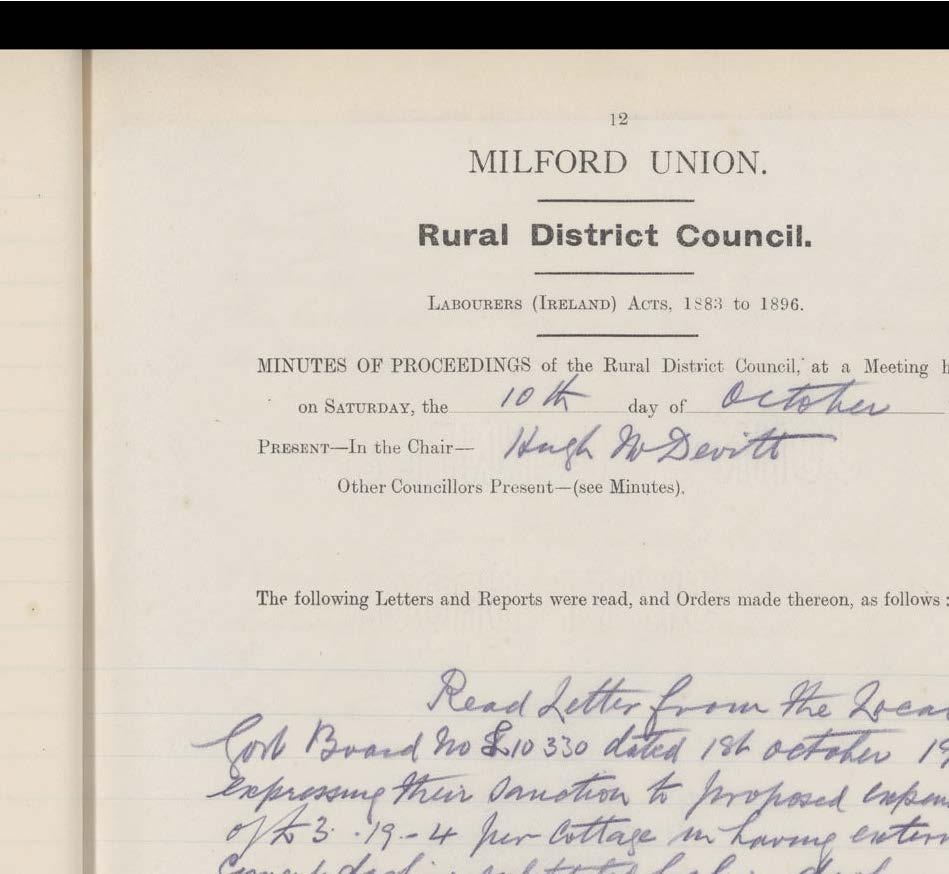 12
MILFORD UNION.
Rural District Council.
LABOURERS (IRELAND) ACTS, 1883 to 1896.
MINUTES OF PROCEEDINGS of the Rural District Council, at a Meeting h
on SATURDAY, the 10th day of October
PRESENT—In the Chair— Hugh McDevitt
Other Councillors Present—(see Minutes).
The following Letters and Reports were read, and Orders made thereon, as follows :
Read Letter from the Loca
Govt Board No 10330 dated 1st October 19
expressing their sanction to proposed expen
of £3-19-4 per Cottage in having extern